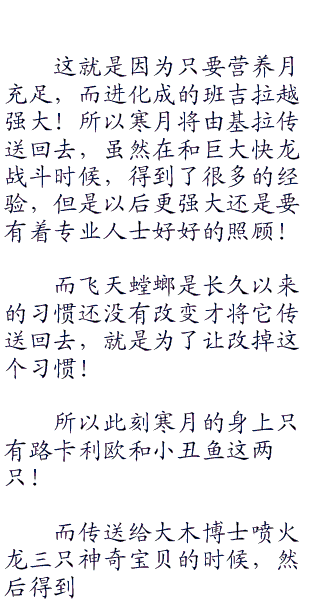 这就是因为只要营养月
充足，而进化成的班吉拉越
强大！所以寒月将由基拉传
送回去，虽然在和巨大快龙
战斗时候，得到了很多的经
验，但是以后更强大还是要
有着专业人士好好的照顾！
而飞天螳螂是长久以来
的习惯还没有改变才将它传
送回去，就是为了让改掉这
个习惯！
所以此刻寒月的身上只
有路卡利欧和小丑鱼这两
只！
而传送给大木博士喷火
龙三只神奇宝贝的时候，然
后得到